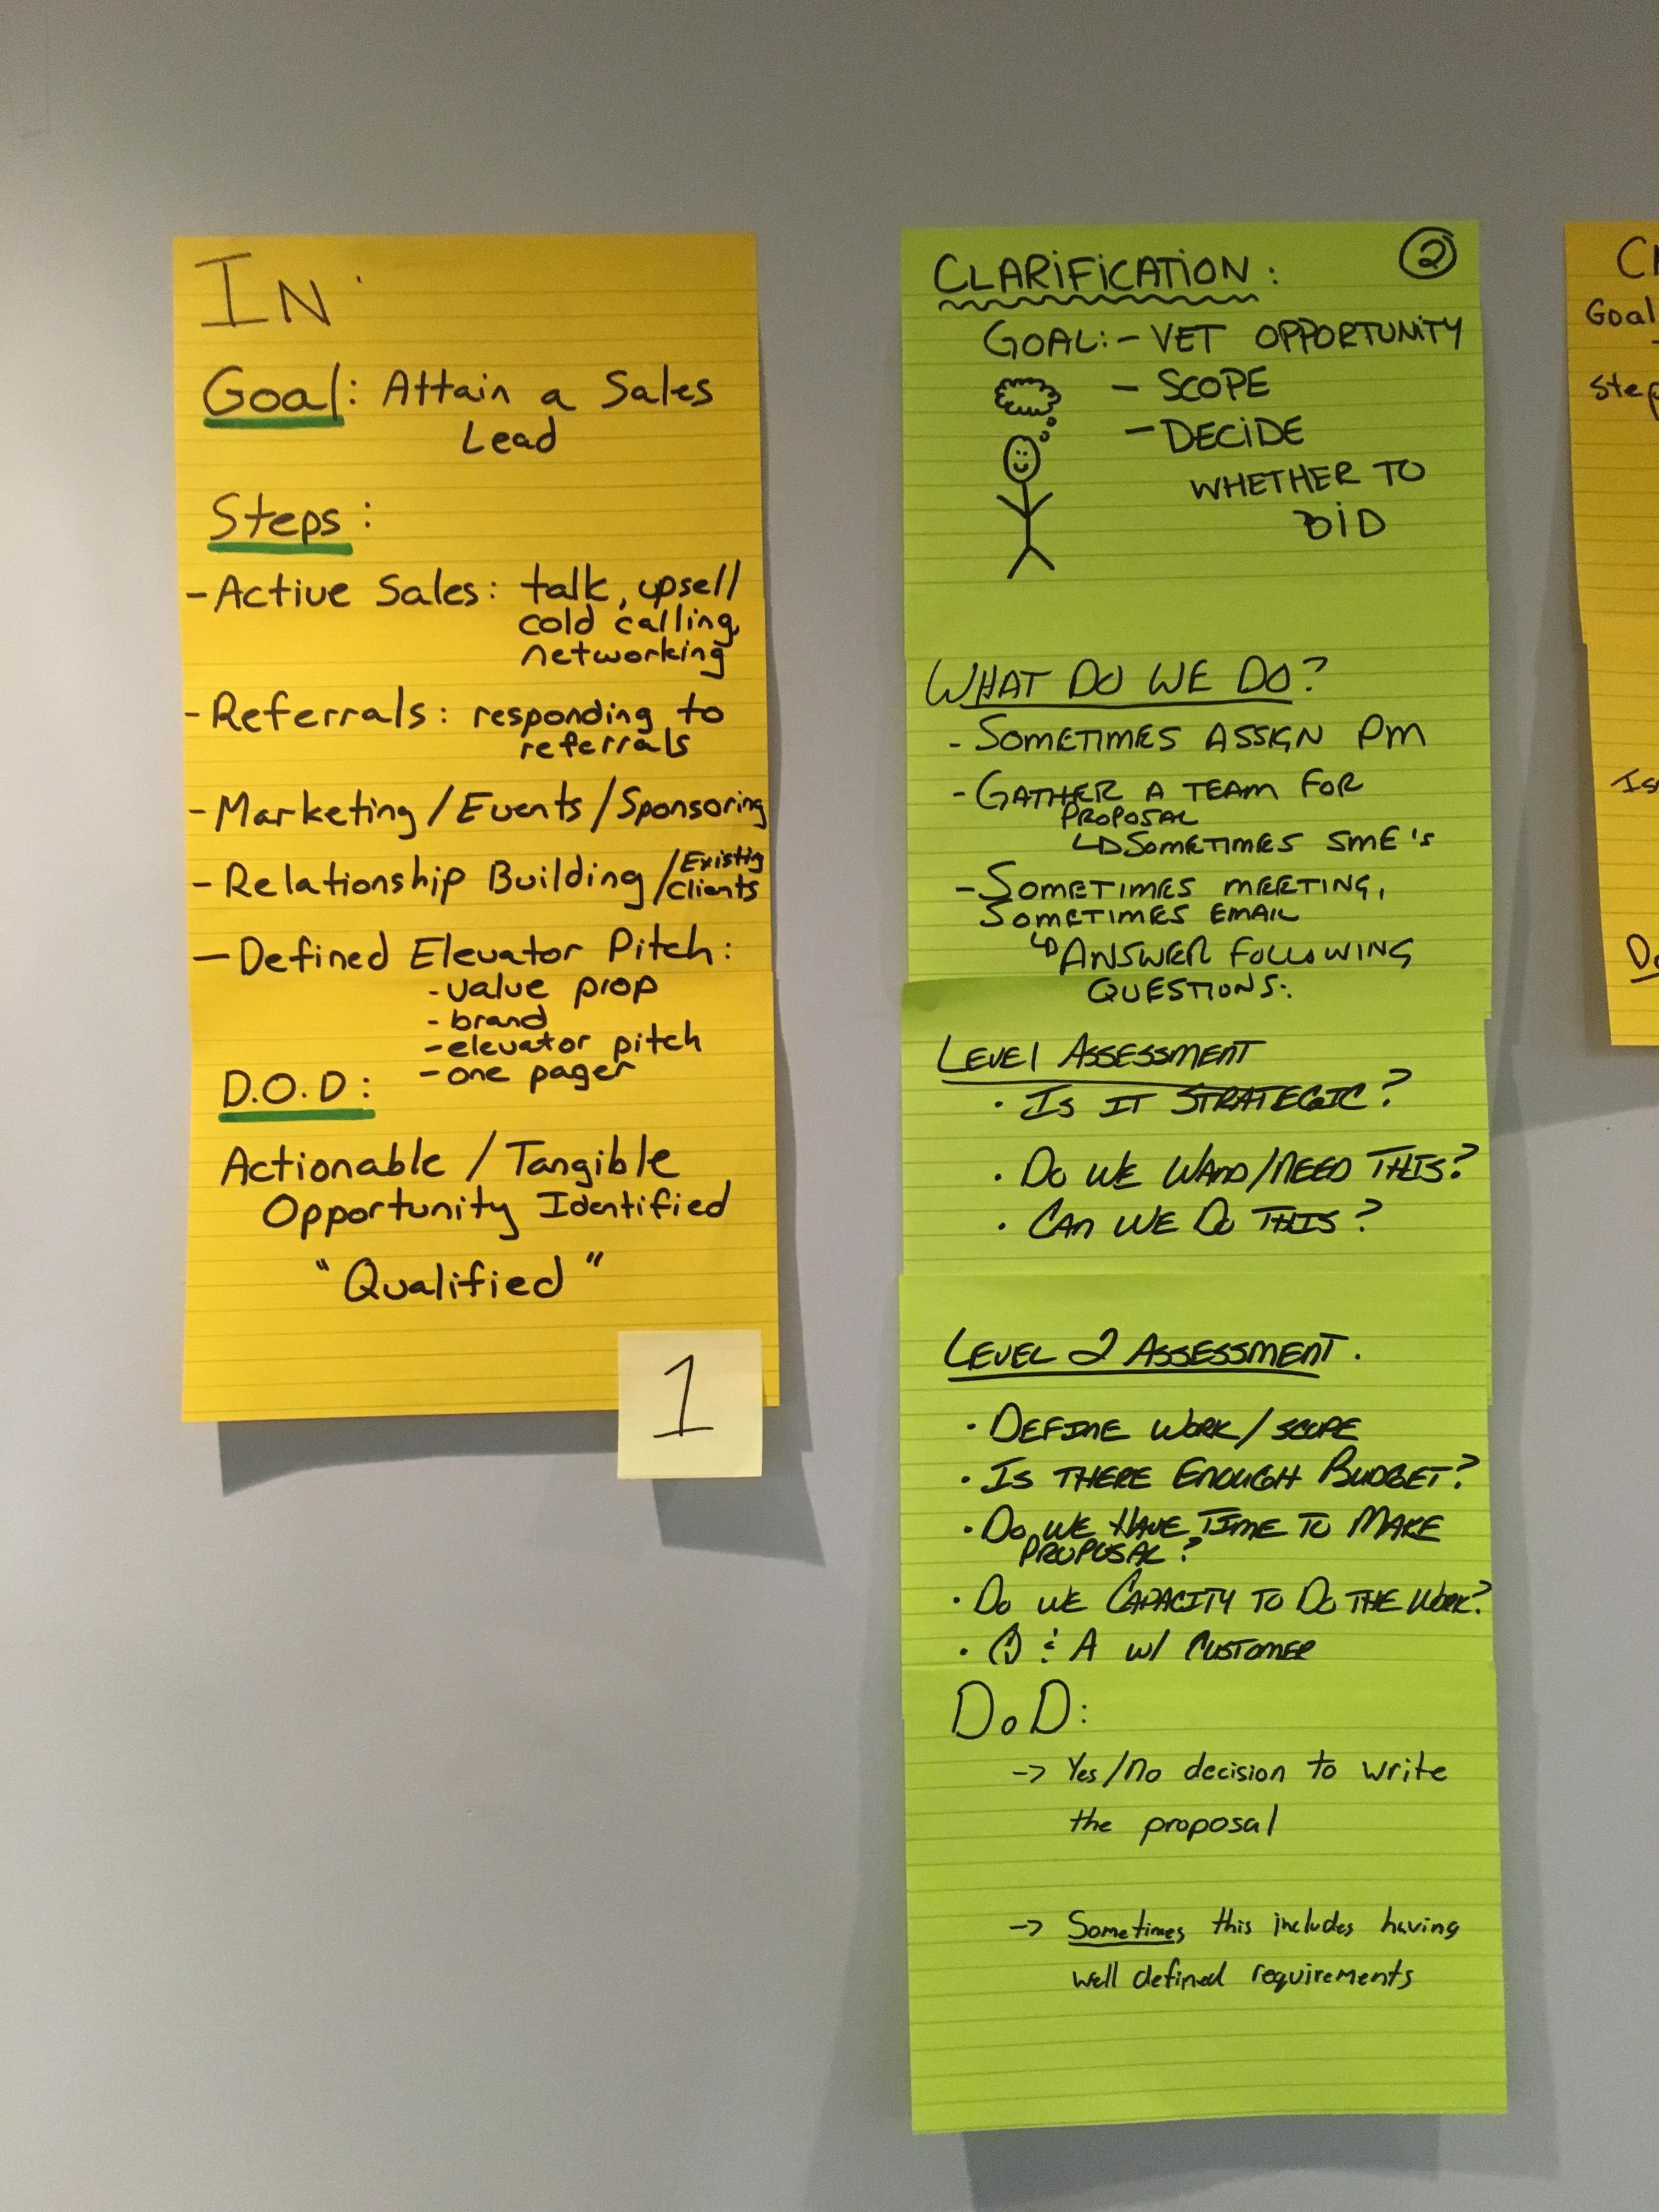 IN:
Goal: Attain a Sales
Lead
Steps:
- Active Sales: talk, upsell
cold calling,
networking
- Referrals: responding to
referrals
- Marketing / Events / Sponsoring
- Relationship Building / Existing
Clients
- Defined Elevator Pitch:
- value prop
- brand
- elevator pitch
- one pager
D.O.D:
Actionable / Tangible
Opportunity Identified
"Qualified"
1
CLARIFICATION: 2
GOAL: - VET OPPORTUNITY
- SCOPE
- DECIDE
WHETHER TO
BID
WHAT DO WE DO?
- SOMETIMES ASSIGN PM
- GATHER A TEAM FOR
PROPOSAL
↳ SOMETIMES SME's
- SOMETIMES MEETING,
SOMETIMES EMAIL
↳ ANSWER FOLLOWING
QUESTIONS:
LEVEL 1 ASSESSMENT
• IS IT STRATEGIC?
• DO WE WANT/NEED THIS?
• CAN WE DO THIS?
LEVEL 2 ASSESSMENT.
• DEFINE WORK / SCOPE
• IS THERE ENOUGH BUDGET?
• DO WE HAVE TIME TO MAKE
PROPOSAL?
• DO WE CAPACITY TO DO THE WORK?
• Q & A W/ CUSTOMER
DoD:
-> Yes/No decision to write
the proposal
-> Sometimes this includes having
well defined requirements
Goal